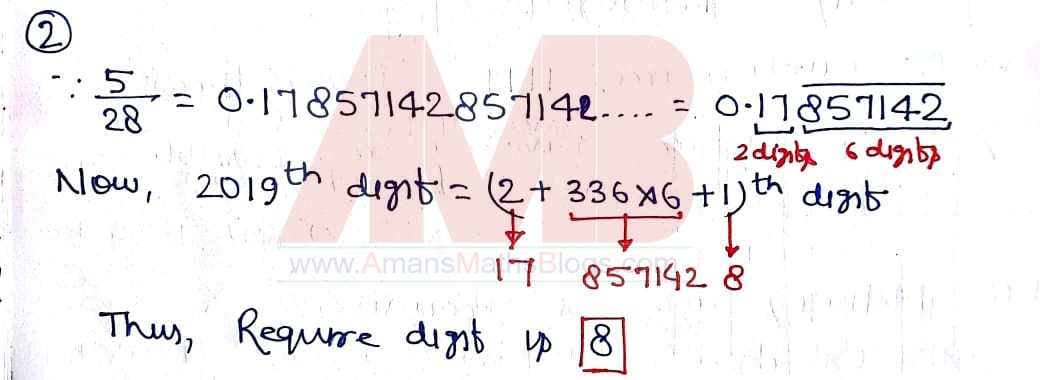 ②
∵ 5/28 = 0.17857142857142.... = 0.17857142
2 digits 6 digits
Now, 2019th digit = (2 + 336×6 + 1)th digit
www.AmansMathsBlogs.com
17 857142 8
Thus, Require digit is 8